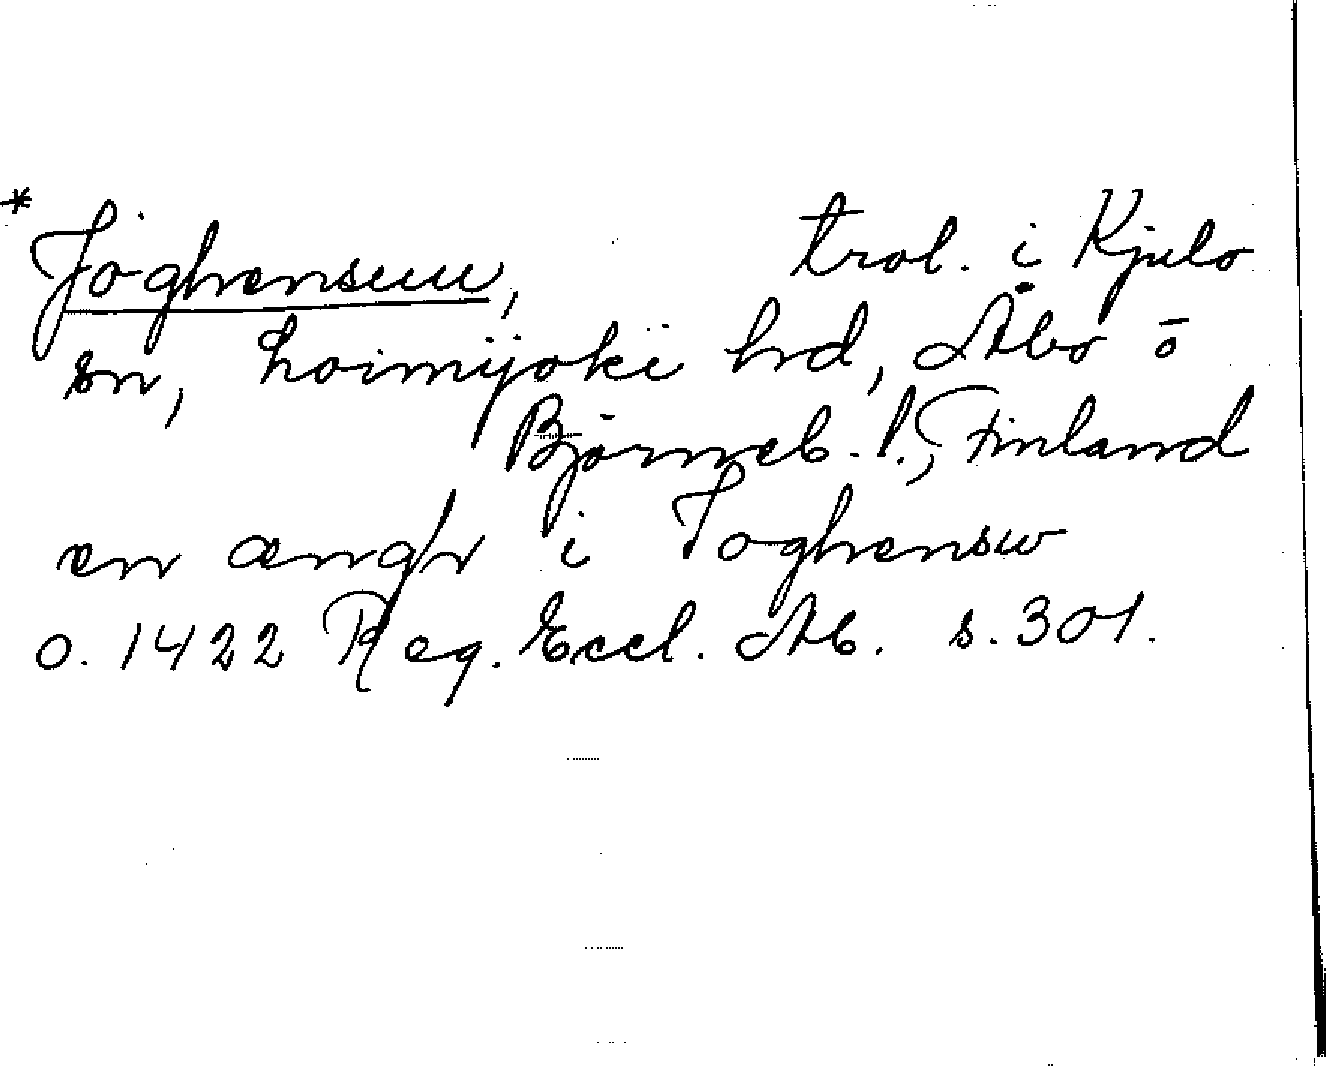 * Joghensuu, trol. i Kjulo
sn, Loimijoki hrd, Åbo o
Björneb. l., Finland
en ængh i Joghensw
o. 1422 Reg. Eccl. Ab. s. 301.